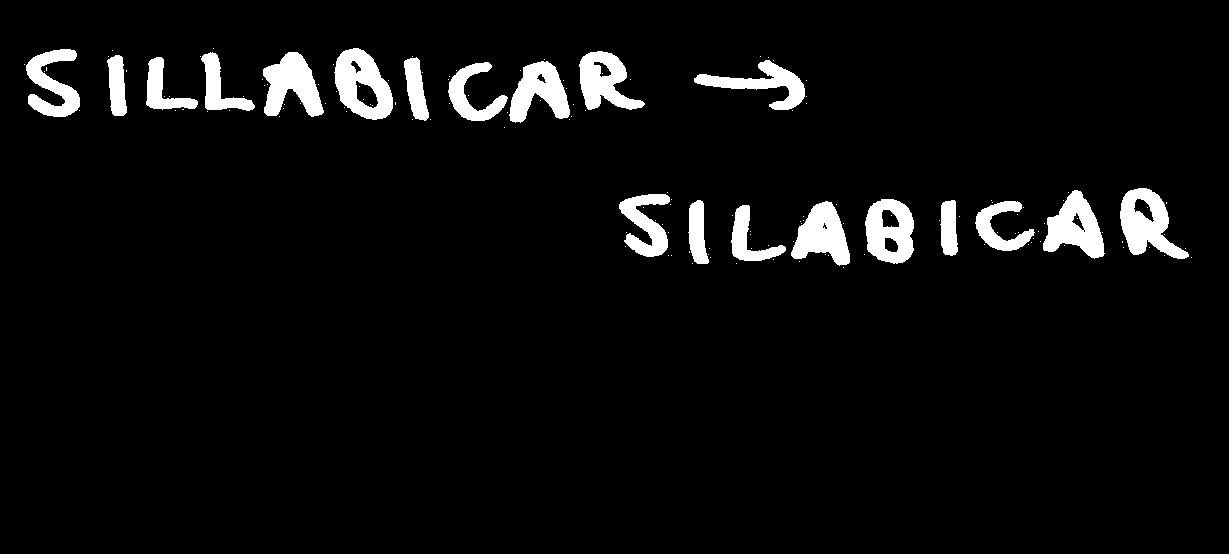 SILLABICAR →
SILABICAR